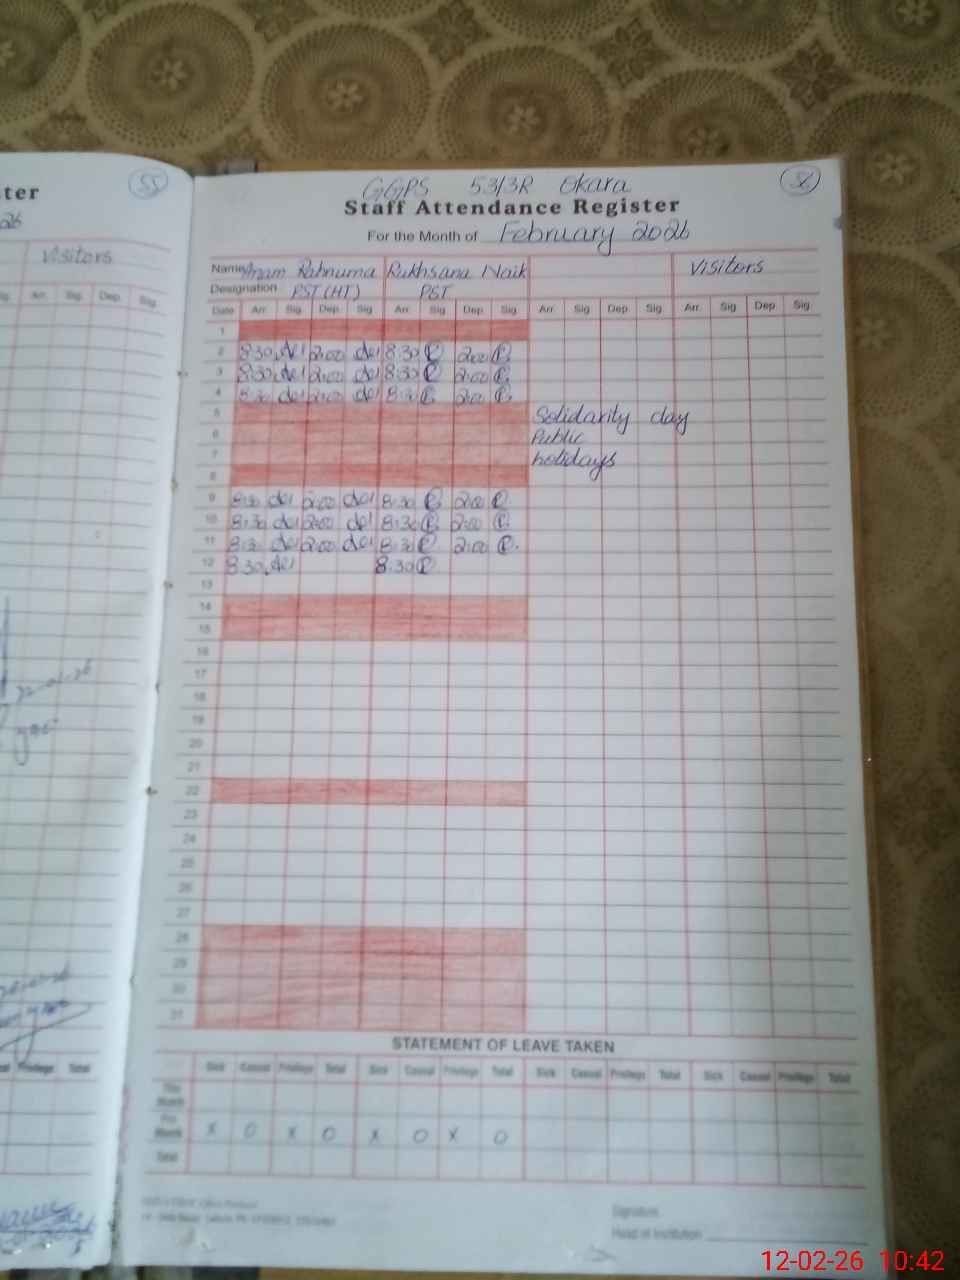 ter
55
26
visitors
Arr. Sig. Dep. Sig.
GGPS 53/3R Okara
56
Staff Attendance Register
For the Month of February 2026
Name Anam Rahnuma Rukhsana Naik visitors
Designation PST (HT) PST
Date Arr. Sig. Dep. Sig Arr. Sig Dep. Sig. Arr. Sig Dep. Sig. Arr. Sig Dep Sig.
1
2 8:30 2:00 8:30 2:00
3 8:30 2:00 8:30 2:00
4 8:30 2:00 8:30 2:00
5 Solidarity day
6 Public
7 holidays
8
9 8:30 2:00 8:30 2:00
10 8:30 2:00 8:30 2:00
11 8:30 2:00 8:30 2:00
12 8:30 8:30
13
14
15
16
17
18
19
20
21
22
23
24
25
26
27
28
29
30
31
STATEMENT OF LEAVE TAKEN
Sick Casual Privilege Total Sick Casual Privilege Total Sick Casual Privilege Total Sick Casual Privilege Total
This Month
Pre. Month x 0 x 0 x 0 x 0
Total
Signature
Head of Institution
12-02-26 10:42